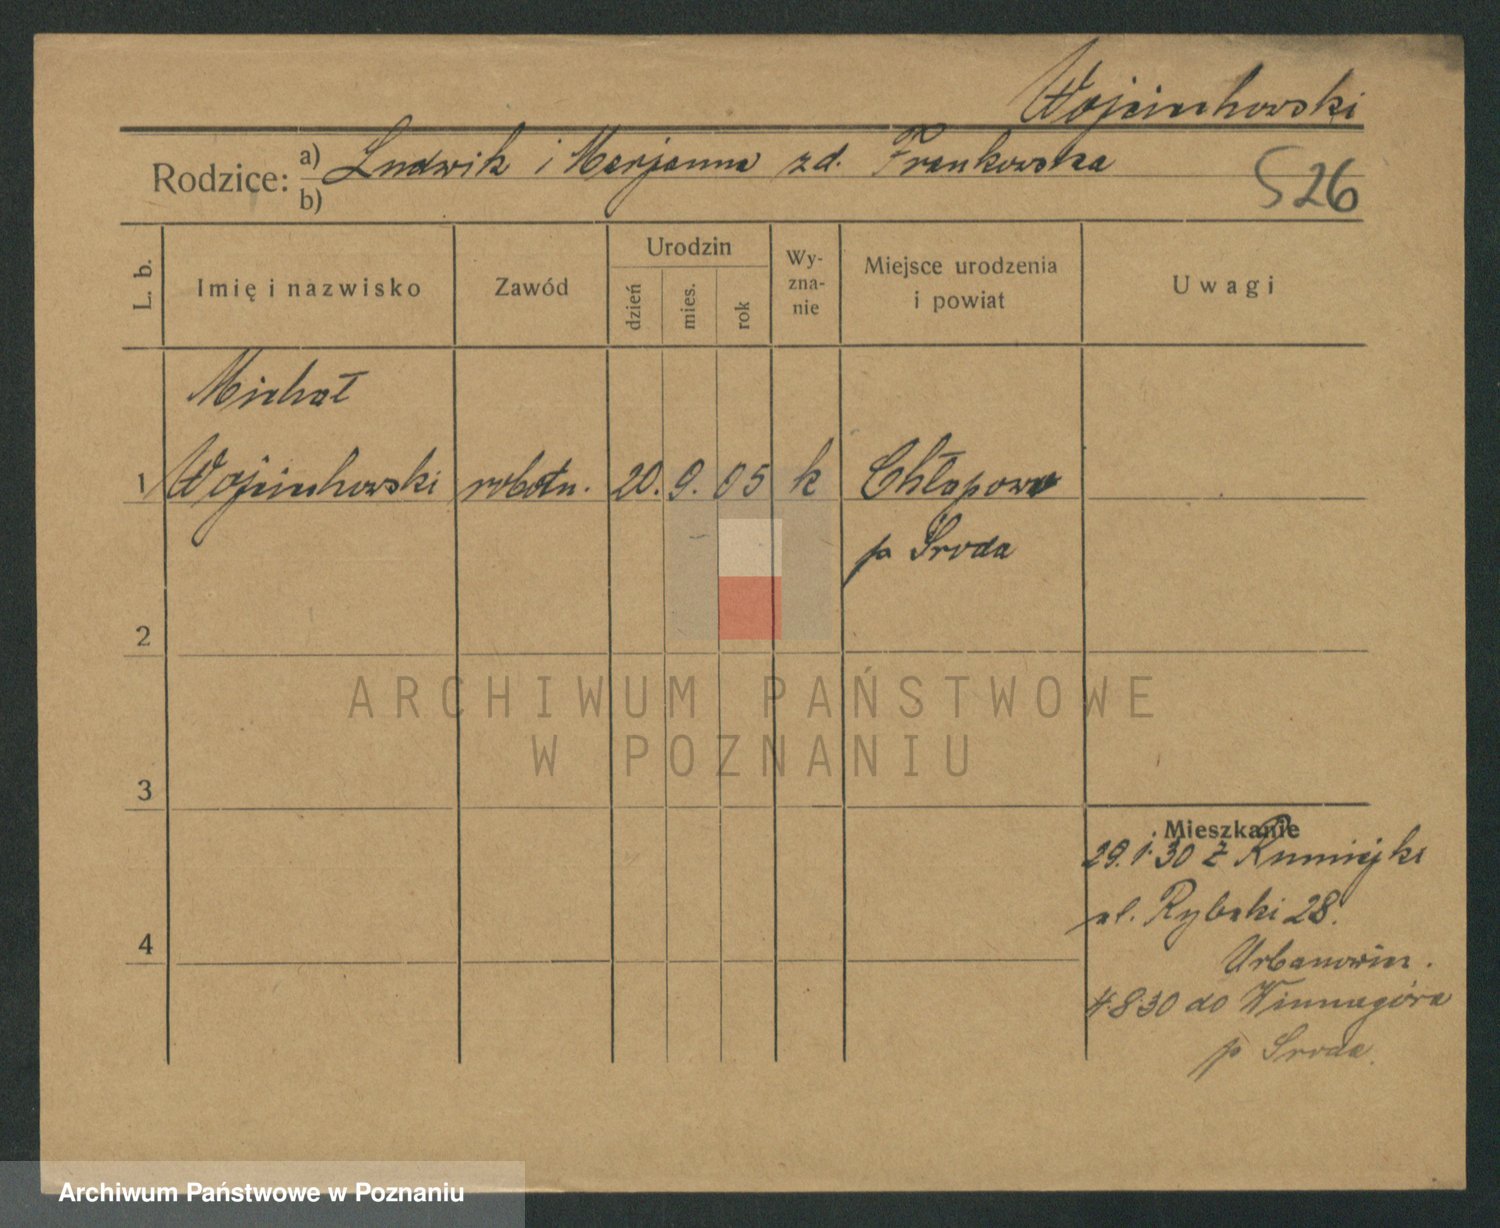 Wojciechowski
Rodzice: a) Ludwik i Marjanna zd. Frankowska
b)
526
L. b.
Imię i nazwisko
Zawód
Urodzin
dzień
mies.
rok
Wy-
zna-
nie
Miejsce urodzenia
i powiat
Uwagi
Michał
1 Wojciechowski robotn. 20. 9. 05 k Chłapowo
p Środa
2
ARCHIWUM PAŃSTWOWE
W POZNANIU
3
Mieszkanie
29.1.30 z Rumiejki
ul. Rybaki 28.
4
Urbanowicz.
4.8.30 do Winnagóra
p Środa.
Archiwum Państwowe w Poznaniu